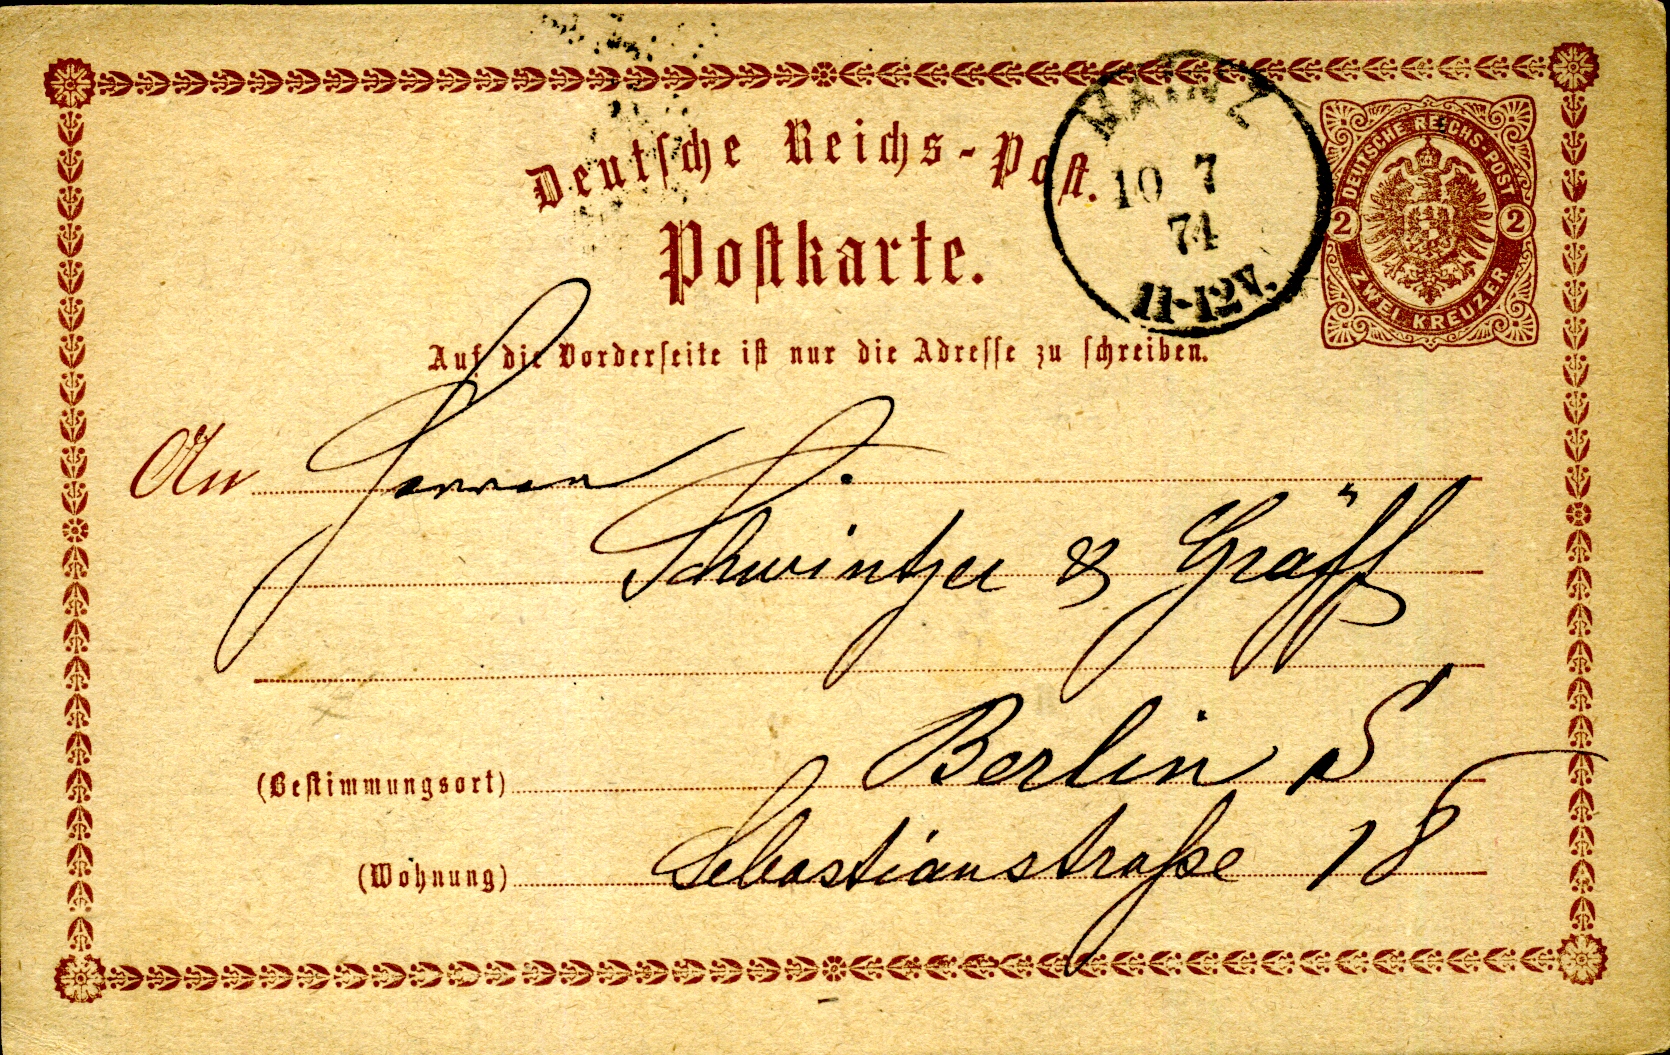 Deutsche Reichs-Post.
Postkarte.
MAINZ
10 7
74
11-12V.
DEUTSCHE REICHS-POST
2 2
ZWEI KREUZER
Auf die Vorderseite ist nur die Adresse zu schreiben.
An Herren
Schwintzer & Gräff
(Bestimmungsort) Berlin S
(Wohnung) Sebastianstraße 18